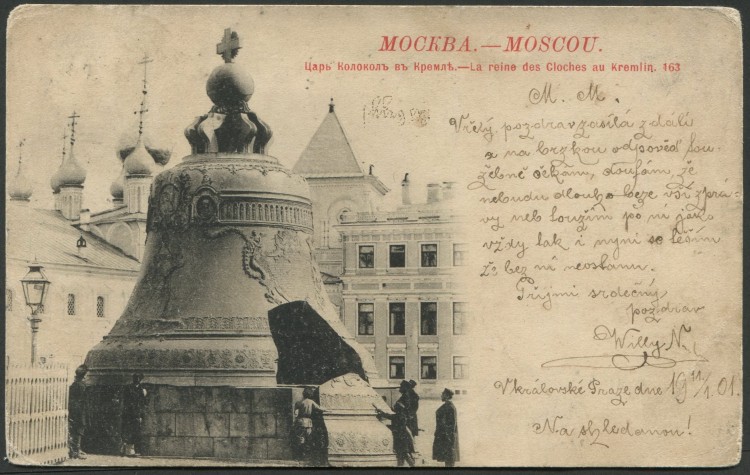 МОСКВА.—MOSCOU.
Царь Колоколъ въ Кремлѣ.—La reine des Cloches au Kremlin. 163
M. M.
Vřelý pozdrav zasílá z dálí
a na brzkou odpověď tou-
žebně čekám, doufám, že
nebudu dlouho beze vší zprá-
vy neb toužím po ní jako
vždy tak i nyní se těším
že bez ní neostanu.
Přijmi srdečný
pozdrav
Willy N.
V královské Praze dne 19 11/1 01.
Na shledanou!